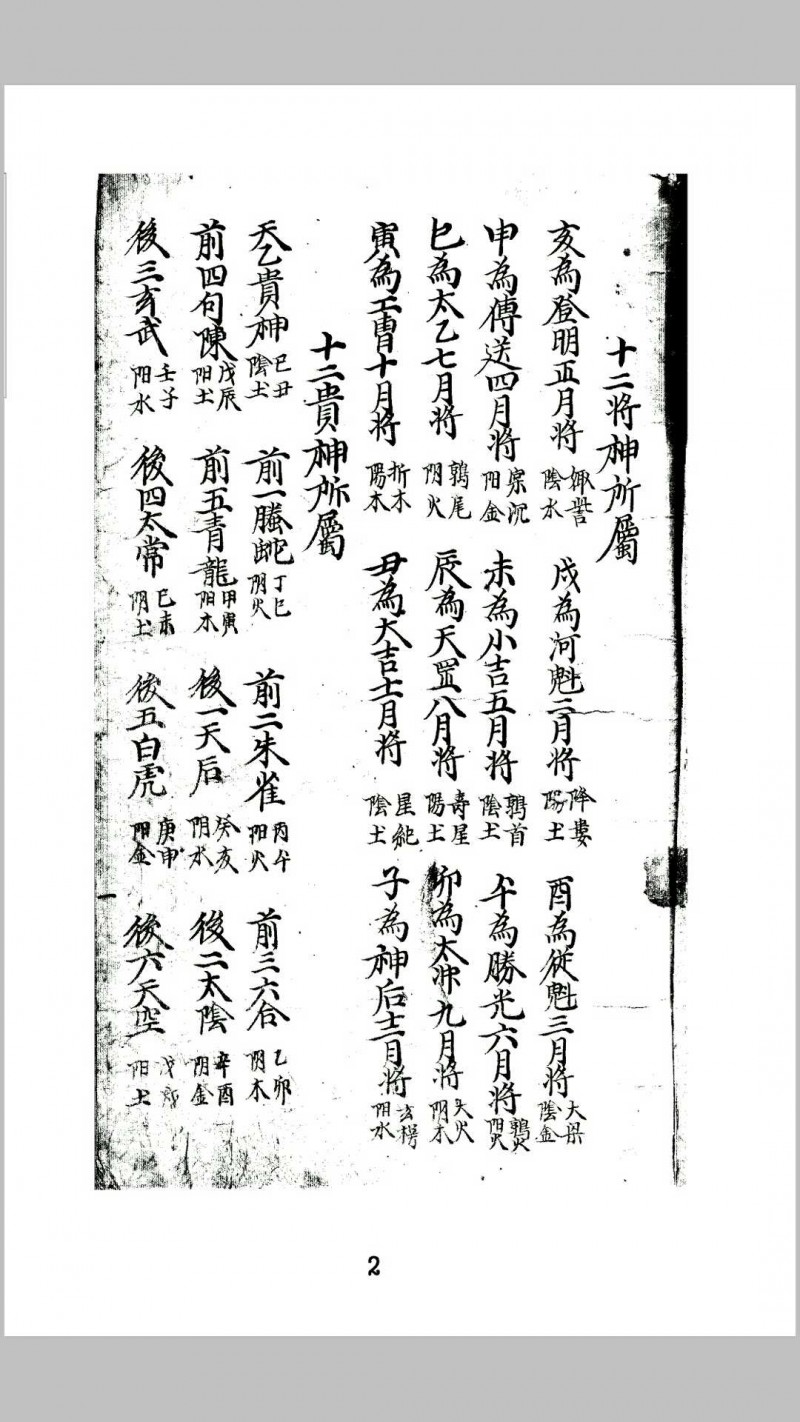 十二将神所屬
亥為登明正月将 娵訾 陰水 戌為河魁二月将 降婁 陽土 酉為従魁三月将 大梁 陰金
申為傳送四月将 宲沉 阳金 未為小吉五月将 鶉首 陰土 午為勝光六月将 鶉火 阳火
巳為太乙七月将 鶉尾 阴火 辰為天罡八月将 壽星 陽土 卯為太冲九月将 大火 阴木
寅為工曺十月将 折木 陽木 丑為大吉十一月将 星紀 陰土 子為神后十二月将 玄枵 阳水
十二貴神所屬
天乙貴神 巳丑 陰土 前一螣蛇 丁巳 阴火 前二朱雀 丙午 阳火 前三六合 乙卯 阴木
前四勾陳 戊辰 阳土 前五青龍 甲寅 阳木 後一天后 癸亥 阴水 後二太陰 辛酉 阴金
後三玄武 壬子 阳水 後四太常 巳未 阴土 後五白虎 庚申 阳金 後六天空 戊戌 阳土
2